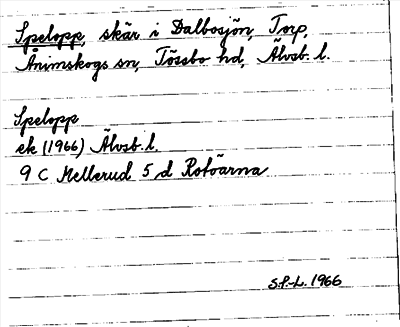 Spelopp, skär i Dalbosjön, Torp,
Ånimskogs sn, Tössbo hd, Älvsb. l.
Spelopp
ek (1966) Älvsb. l.
9 C Mellerud 5 d Rotöarna
S.P.-L. 1966